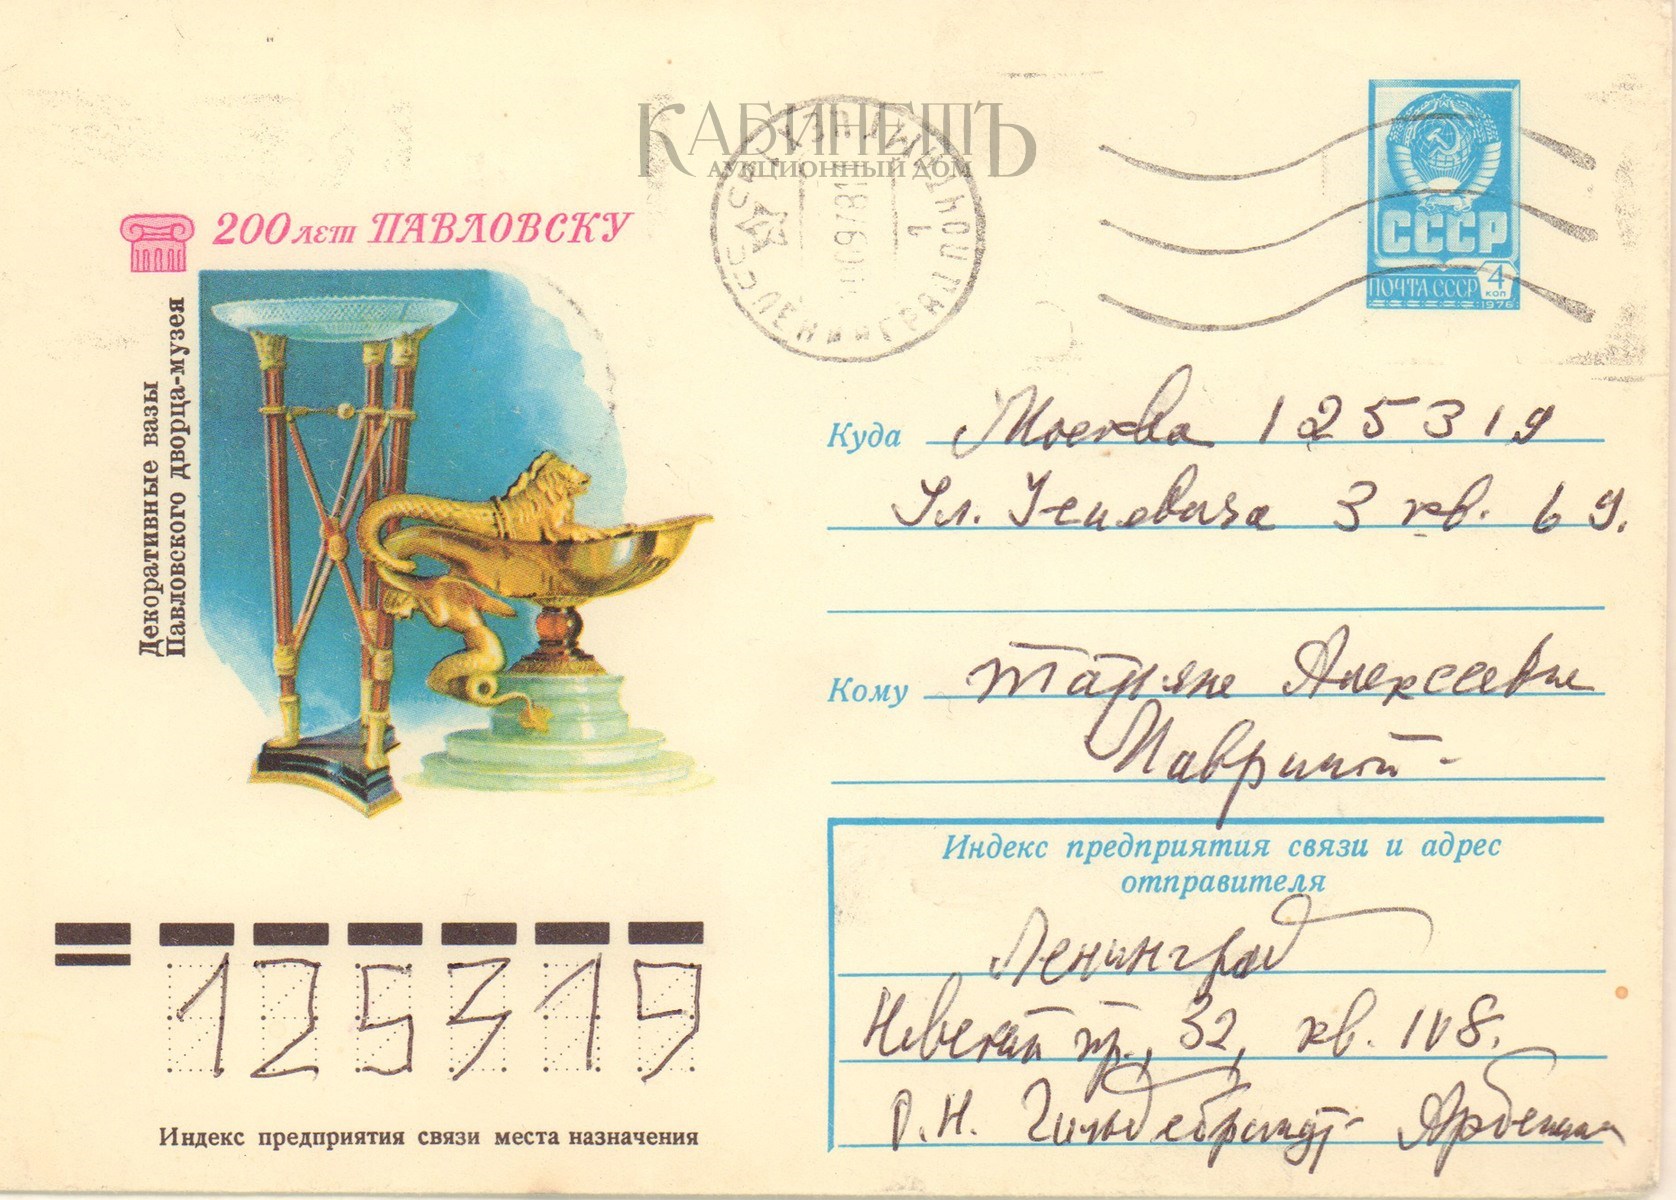 КАБИНЕТЪ
АУКЦИОННЫЙ ДОМ
200 лет ПАВЛОВСКУ
Декоративные вазы
Павловского дворца-музея
СССР ЛЕНИНГРАД ПОЧТАМТ
1
СССР
ПОЧТА СССР 4 КОП
1976
Куда Москва 125319
Ул. Усиевича 3 кв. 69.
Кому Татьяне Алексеевне
Мавриной
Индекс предприятия связи и адрес
отправителя
Ленинград
Невский пр., 32, кв. 108.
Гильдебрандт-Арбенина
125319
Индекс предприятия связи места назначения